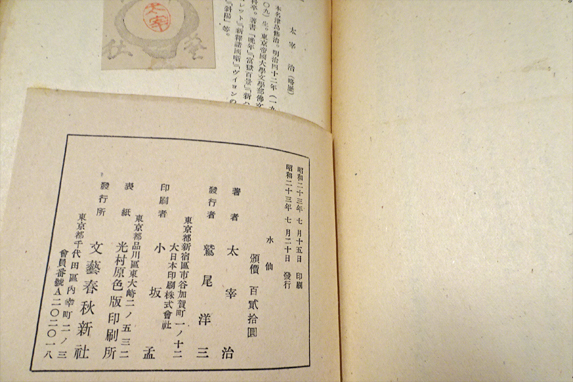 太宰治(略歷)
本名津島修治。明治四十二年(一九
〇九)生。東京帝國大學文學部佛文
科卒。著書『晩年』『富嶽百景』『新ハ
ムレット』『新釋諸國噺』『ヴィヨンの
『斜陽』等。
太宰
昭和二十三年 七月十五日 印刷
昭和二十三年 七月二十日 發行
水仙
頒價 百貳拾圓
著者 太宰治
發行者 鷲尾洋三
東京都新宿區市谷加賀町一ノ十二
大日本印刷株式會社
印刷者 小坂孟
東京都品川區東大崎二ノ五三二
表紙 光村原色版印刷所
發行所 文藝春秋新社
東京都千代田區內幸町二ノ三
會員番號A二〇二〇一八